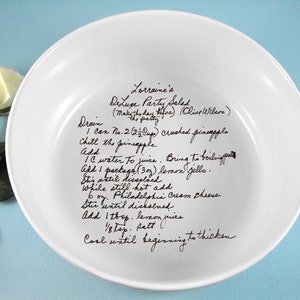 Lorraine's
DeLuxe Party Salad
(Make the day before) (Olive Wilson)
the party
Drain
1 can No. 2 (2½ cup) crushed pineapple
Chill the pineapple
Add
1 C water to juice. Bring to boiling
Add 1 package (3 oz) lemon jello.
Stir until dissolved
While still hot add
6 oz. Philadelphia Cream Cheese
Stir until dissolved
Add 1 tbsp. lemon juice
⅛ tsp. salt
Cool until beginning to thicken